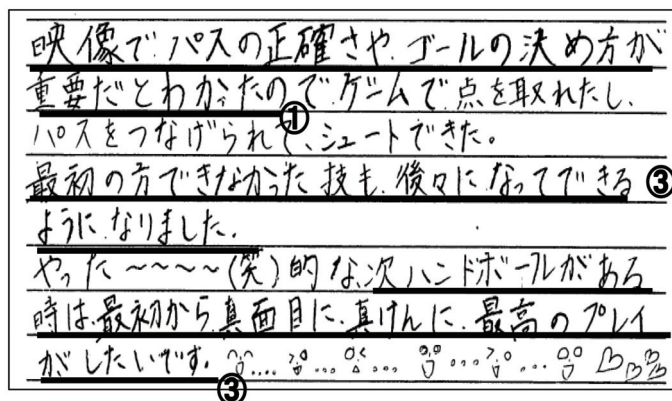 映像で、パスの正確さや、ゴールの決め方が
重要だとわかったので、ゲームで点を取れたし、
①
パスをつなげられて、シュートできた。
最初の方できなかった技も、後々になってできる
③
ように、なりました。
やった～～～～(笑)的な、次ハンドボールがある
時は、最初から、真面目に、真けんに、最高のプレイ
がしたいです。
③